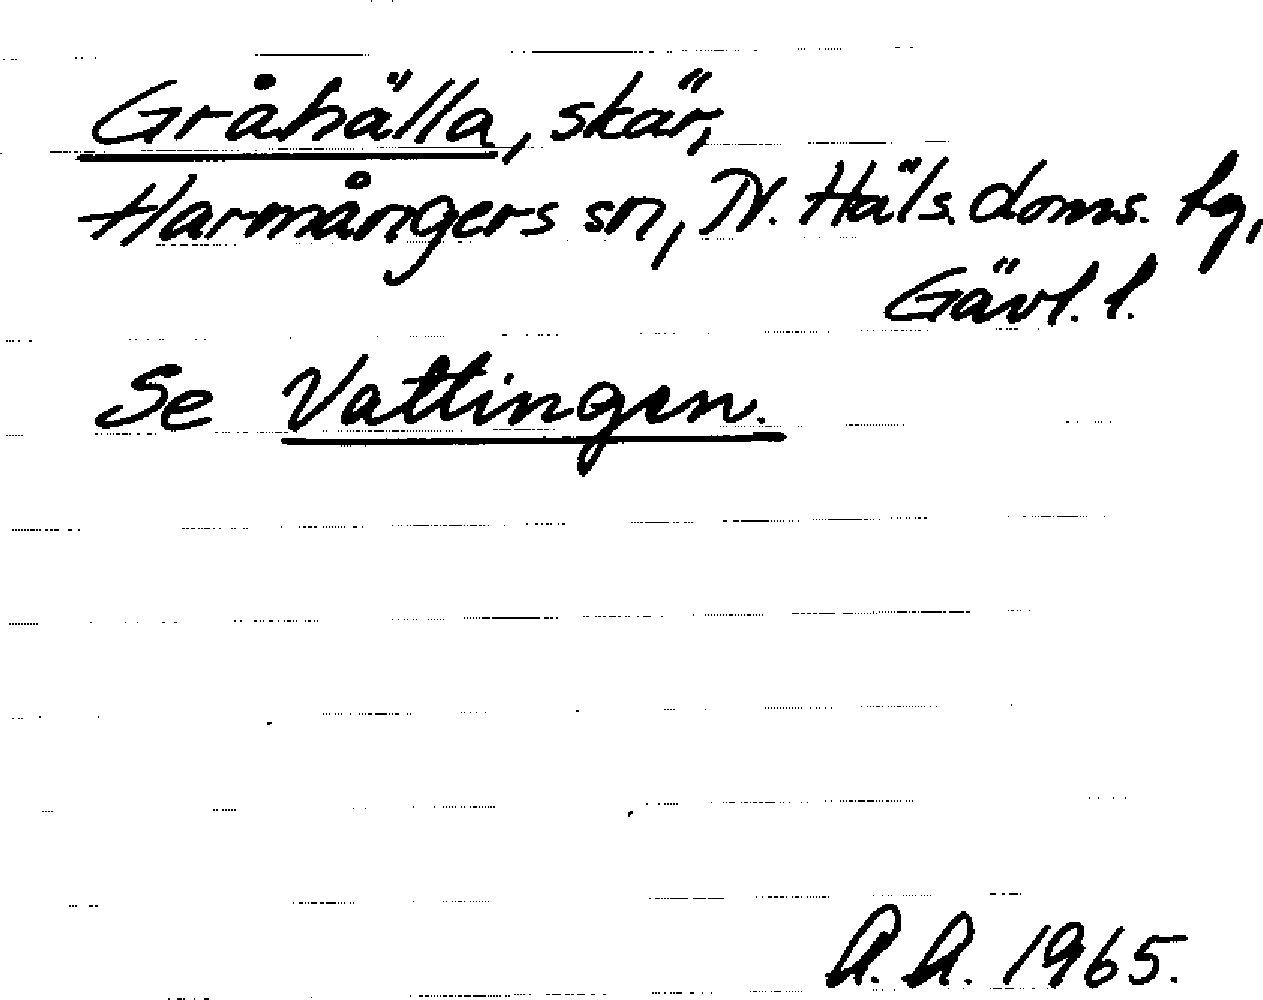 Gråhälla, skär,
Harmångers sn, N. Häls. doms. fg,
Gävl. l.
Se Vattingen.
A. A. 1965.